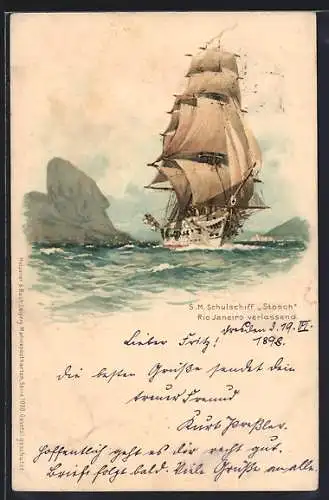 S. M. Schulschiff „Stosch"
Rio Janeiro verlassend.
Dresden d. 19. VI.
1898.
Lieber Fritz!
die besten Grüße sendet dein
treuer Freund
Kurt Preßler.
hoffentlich geht es dir recht gut.
Brief folgt bald. Viele Grüße an alle.
Meissner & Buch, Leipzig, Marinepostkarten, Serie 1018. Gesetzl. geschützt.